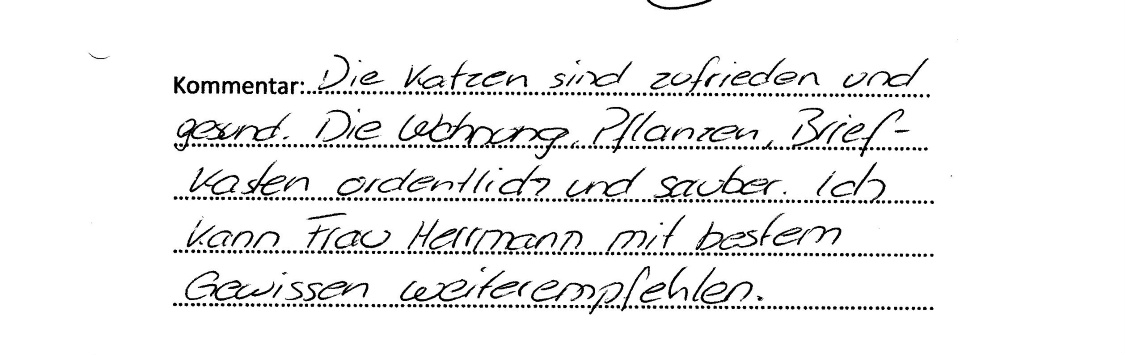 Kommentar: Die Katzen sind zufrieden und
gesund. Die Wohnung, Pflanzen, Brief-
kasten ordentlich und sauber. Ich
kann Frau Herrmann mit bestem
Gewissen weiterempfehlen.